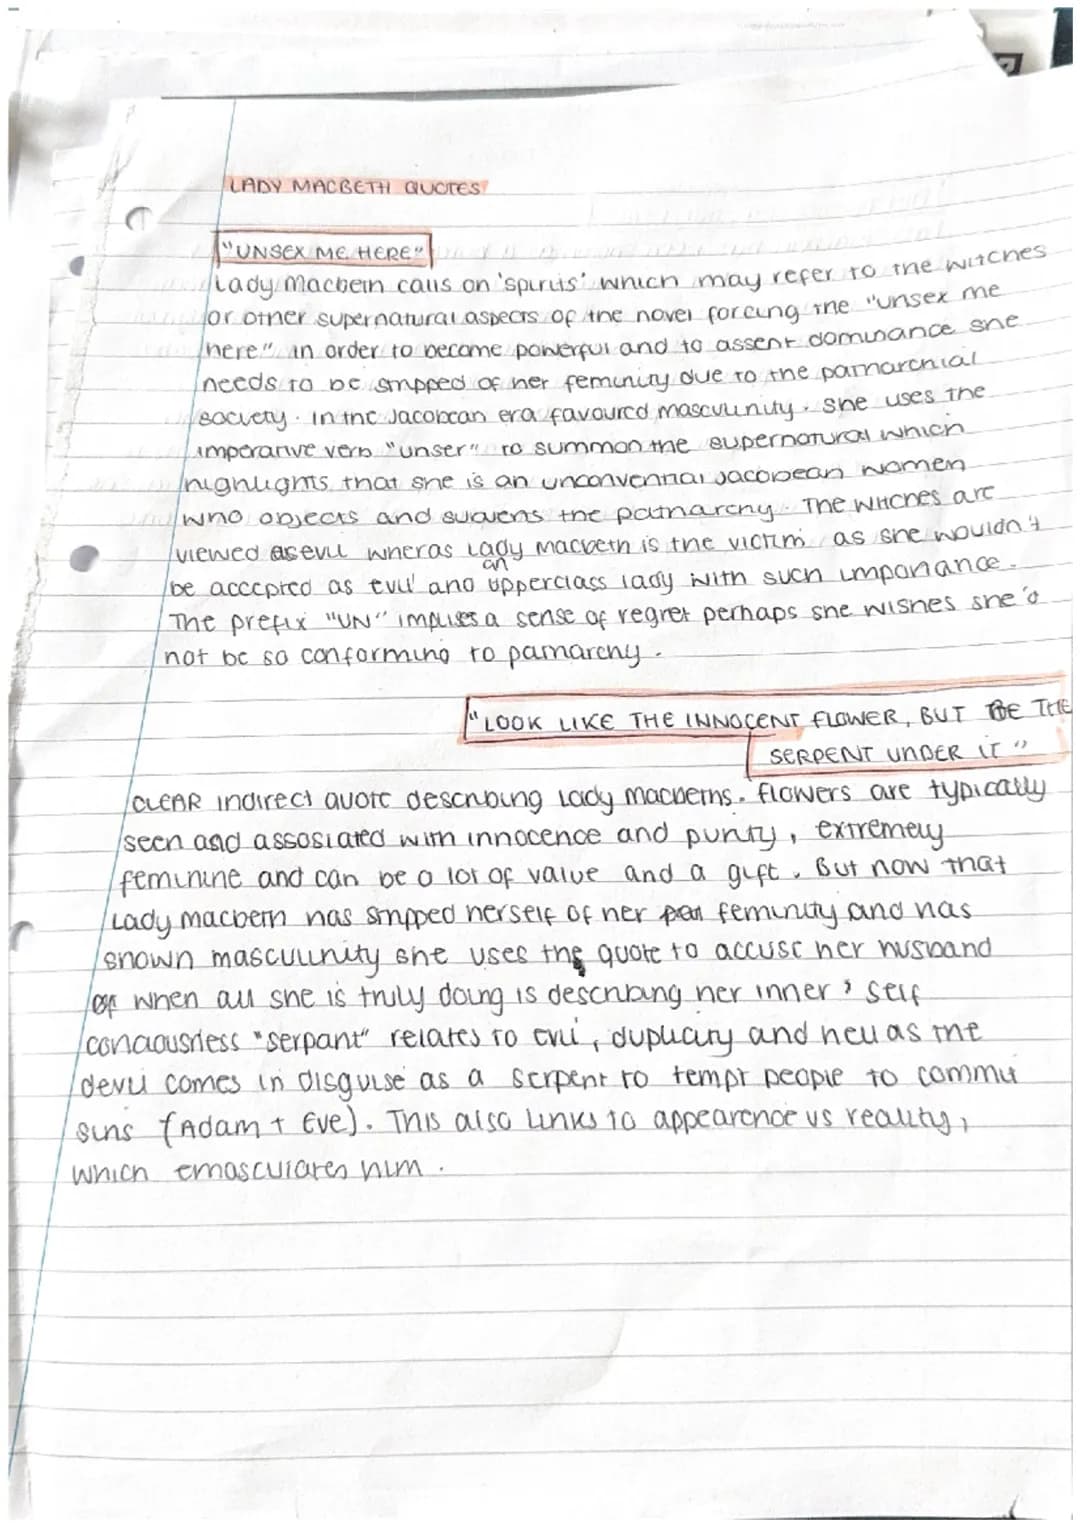 LADY MACBETH QUOTES
"UNSEX ME HERE"
Lady Macbeth calls on 'spirits' which may refer to the witches
or other supernatural aspects of the novel forcing the "unsex me
here" in order to become powerful and to assert dominance she
needs to be stripped of her feminity due to the patriarchial
society. in the Jacobean era favoured masculinity. she uses the
imperative verb "unsex" to summon the supernatural which
highlights that she is an unconvential Jacobean women
who objects and subverts the patriarchy. The witches are
viewed as evil wheras Lady Macbeth is the victim as she wouldn't
be accepted as evil and an upperclass lady with such importance.
The prefix "UN" implies a sense of regret perhaps she wishes she'd
not be so conforming to patriarchy.
"LOOK LIKE THE INNOCENT FLOWER, BUT BE THE
SERPENT UNDER IT"
CLEAR indirect quote describing Lady macbeths. flowers are typically
seen and assosiated with innocence and purity, extremely
feminine and can be a lot of value and a gift. But now that
Lady macbeth has stripped herself of her feminity and has
shown masculinity she uses the quote to accuse her husband
of when all she is truly doing is describing her inner self
conciousness "serpant" relates to evil, duplicity and hell as the
devil comes in disguise as a serpent to tempt people to commit
sins (Adam + Eve). This also links to appearence vs reality,
which emasculates him.